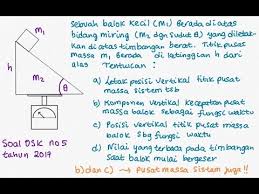 Sebuah balok kecil (M₁) Berada di atas
bidang miring (M₂ dgn sudut θ) yang dile-
kan di atas timbangan berat. Titik pusat
massa m₁ Berada di ketinggian h dari
alas Tentukan :
a) Letak posisi vertikal titik pusat
massa sistem tsb
b) Komponen vertikal kecepatan pusat
massa balok sebagai fungsi waktu
c) Posisi vertikal titik pusat massa
balok sbg fungsi waktu
d) Nilai yang terbaca pada timbangan
saat balok mulai bergeser
b) dan c) → pusat massa sistem juga !!
m₁
h
m₂
θ
Soal OSK no 5
tahun 2017